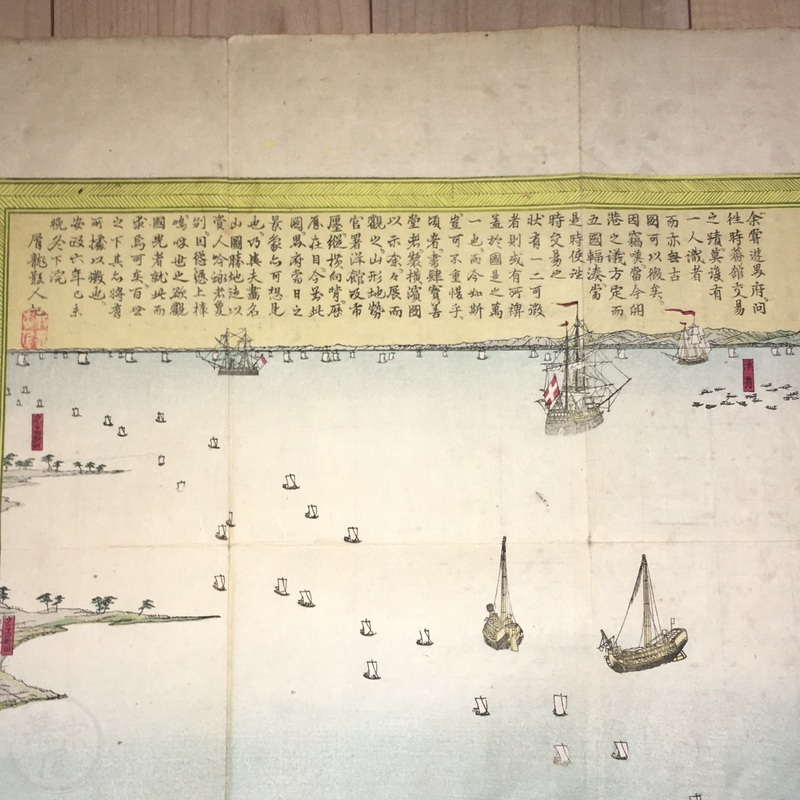 余嘗遊府問
往時蕃舶交易
之蹟莫復有
一人識者
而亦無古
圖可以徴矣
因竊嘆當今開
港之議方定而
五國輻湊當
是時使往
時交易之
状有一二可徴
者則或有所裨
益於國是之萬
一也而今如斯
豈可不重惜乎
頃者書肆寶善
堂老製横濱圖
以示余々展而
觀之山形地勢
官署洋館及市
廛縱横向背歴
歴在目今此
圖府當日之
景象亦可想見
也乃夫畫名
山圖勝地徒以
資人吟翫者
別因上梓
嗚呼世之欲觀
國光者就此而
求焉可矣百世
之下其亦將有
所據以徴也
安政六年己未
晩冬下浣
龍散人記